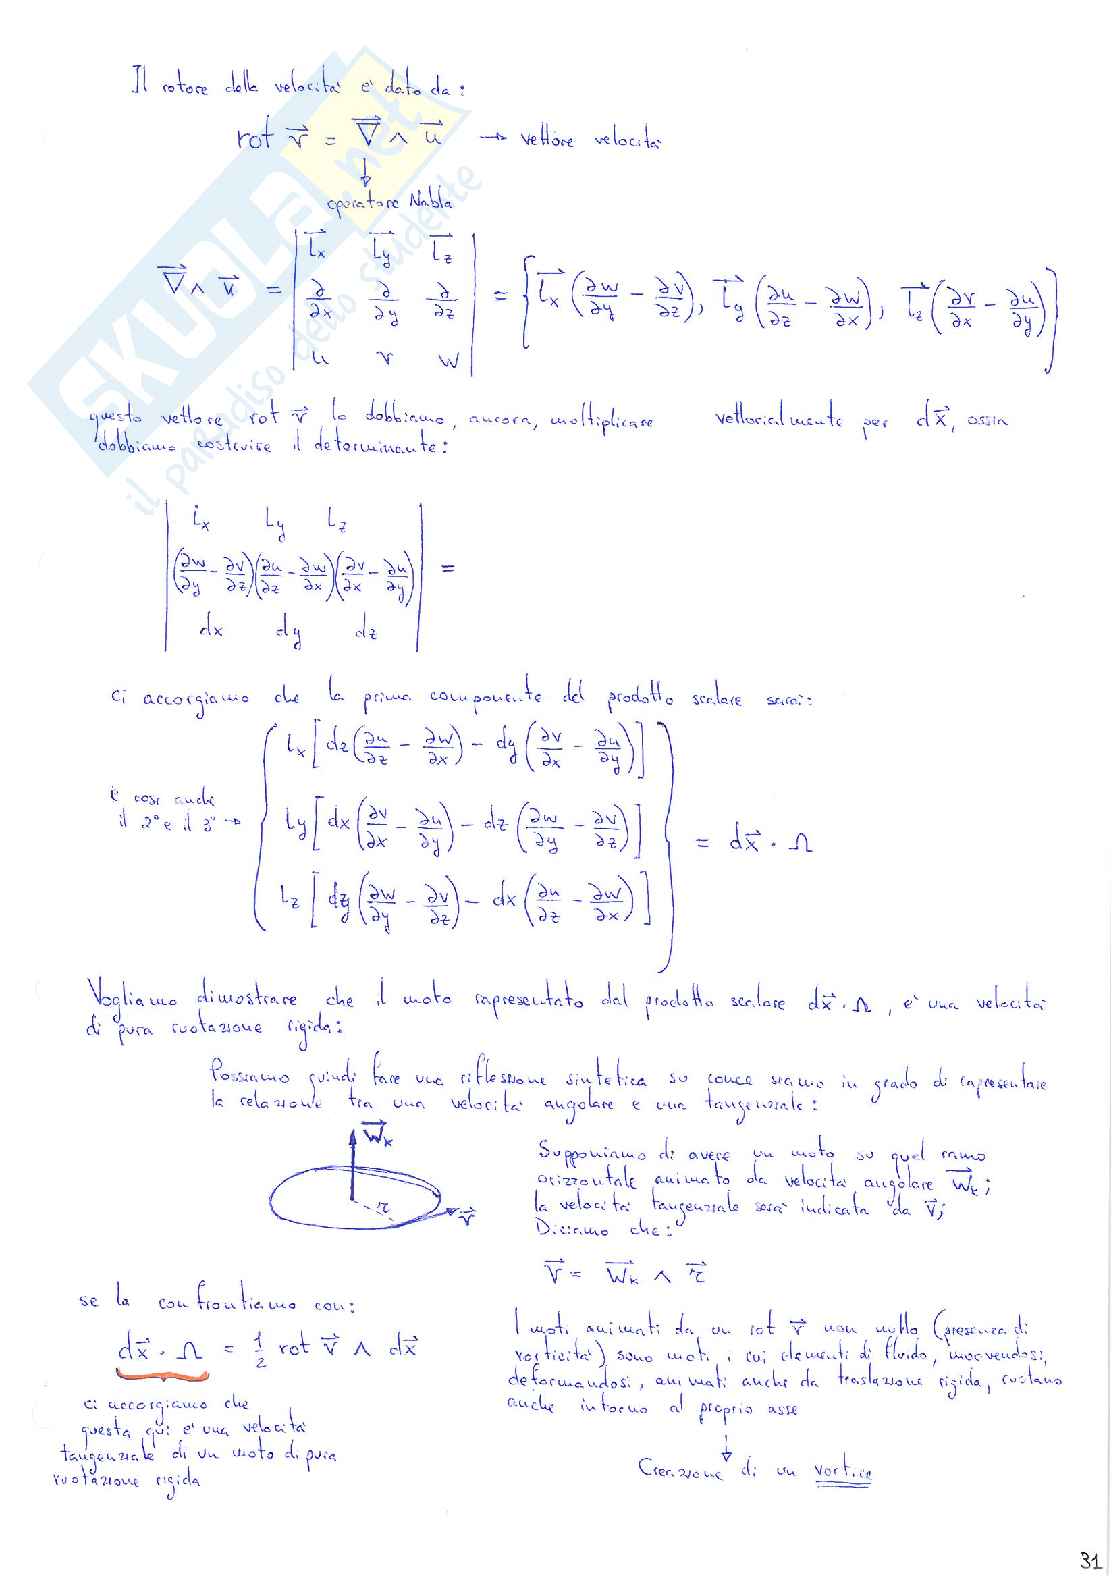 Il rotore della velocità è dato da:
rot v⃗ = ∇⃗ ∧ u⃗ → vettore velocità
↓
operatore Nabla
∇⃗ ∧ v⃗ = | i⃗x i⃗y i⃗z | = { i⃗x (∂w/∂y − ∂v/∂z), i⃗y (∂u/∂z − ∂w/∂x), i⃗z (∂v/∂x − ∂u/∂y) }
| ∂/∂x ∂/∂y ∂/∂z |
| u v w |
questo vettore rot v⃗ lo dobbiamo, ancora, moltiplicare vettorialmente per dx⃗, ossia
dobbiamo costruire il determinante:
| ix iy iz |
| (∂w/∂y − ∂v/∂z) (∂u/∂z − ∂w/∂x) (∂v/∂x − ∂u/∂y) | =
| dx dy dz |
ci accorgiamo che la prima componente del prodotto scalare sarà:
ix [dz(∂u/∂z − ∂w/∂x) − dy(∂v/∂x − ∂u/∂y)]
e così anche
il 2° e il 3° →
iy [dx(∂v/∂x − ∂u/∂y) − dz(∂w/∂y − ∂v/∂z)] = dx⃗ · Ω
iz [dy(∂w/∂y − ∂v/∂z) − dx(∂u/∂z − ∂w/∂x)]
Vogliamo dimostrare che il moto rapresentato dal prodotto scalare dx⃗ · Ω, è una velocità
di pura ruotazione rigida:
Possiamo quindi fare una riflessione sintetica su come siamo in grado di rapresentare
la relazione tra una velocità angolare e una tangenziale:
W⃗k
r
v⃗
Supponiamo di avere un moto su quel ramo
orizzontale animato da velocità angolare W⃗k;
la velocità tangenziale sarà indicata da v⃗;
Diciamo che:
v⃗ = W⃗k ∧ r⃗
se la confrontiamo con:
dx⃗ · Ω = 1/2 rot v⃗ ∧ dx⃗
ci accorgiamo che
questa qui è una velocità
tangenziale di un moto di pura
ruotazione rigida
I moti animati da un rot v⃗ non nullo (presenza di
vorticità) sono moti, i cui elementi di fluido, muovendosi,
deformandosi, animati anche da traslazione rigida, ruotano
anche intorno al proprio asse
↓
Creazione di un vortice
31
SKUOLA.net
il paradiso dello studente